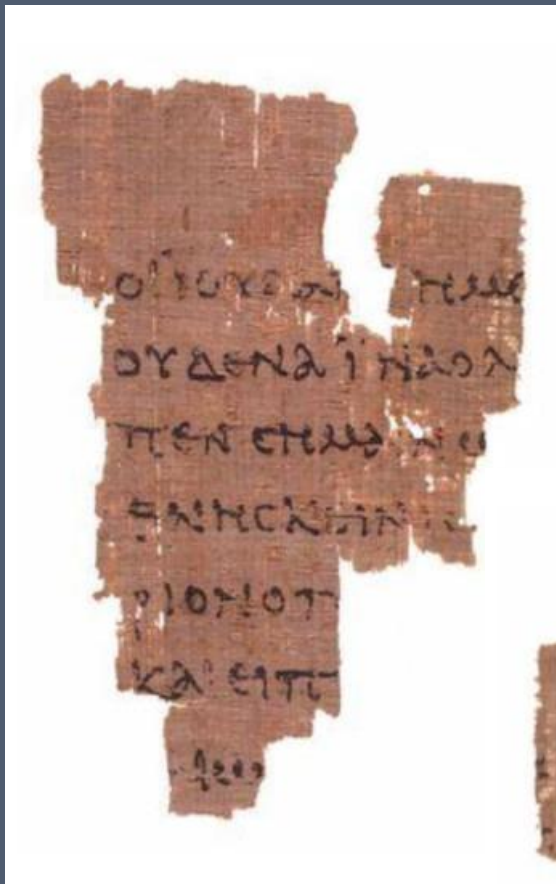 ΟΙΪΟΥΔΑΙ ΗΜ
ΟΥΔΕΝΑΪΝΑΟΛ
ΠΕΝCΗΜΑΙΝΩ
ΘΝΗCΚΕΙΝ
ΡΙΟΝΟΠ
ΚΑΙΕΙΠ